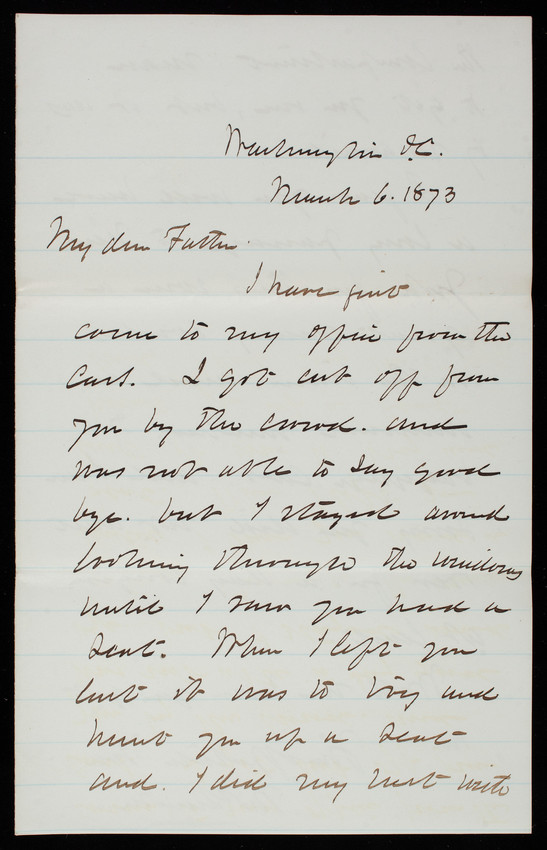 Washington D.C.
March 6. 1873
My dear Father.
I have just
come to my office from the
cars. I got cut off from
you by the crowd. and
was not able to say good
bye. but I stayed around
looking through the windows
until I saw you had a
seat. When I left you
last it was to try and
hunt you up a seat
and. I did my best with